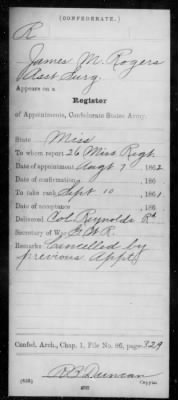 (CONFEDERATE.)
R
James M. Rogers
Asst Surg.
Appears on a
Register
of Appointments, Confederate States Army.
State Miss
To whom report 26 Miss Regt
Date of appointment Augt 7, 1862
Date of confirmation , 186
To take rank Sept 10, 1861
Date of acceptance , 186
Delivered Col. Reynolds Rt
Secretary of W. G. W. R.
Remarks Cancelled by
previous Appt
Confed. Arch., Chap. 1, File No. 86, page 329
R B Duncan
(635) Copyist.